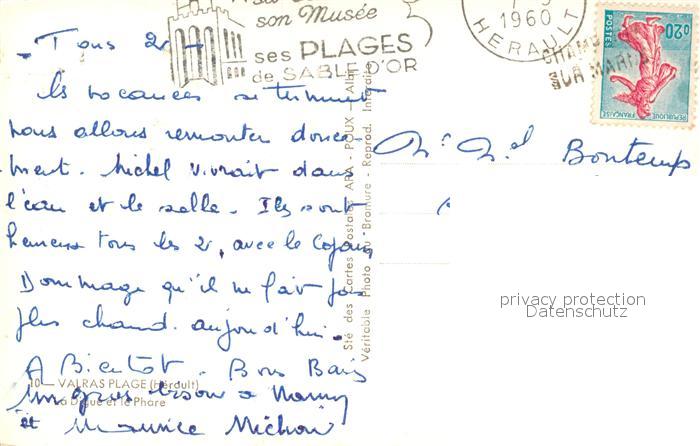 son Musée
ses PLAGES
de SABLE D'OR
1960
HERAULT
0,20
POSTES
REPUBLIQUE FRANÇAISE
SUR MARNE
Tous 2
les vacances se terminent
nous allons remonter douce-
ment. Michel vivrait dans
l'eau et le salle. Ils sont
heureux tous les 2, avec le Copain
Dommage qu'il ne fait pas
plus chaud. aujourd'hui.
A Bientot. Bons Bais
un gros bisou a Nanny
et Maurice Michou
Bontemp
10 - VALRAS PLAGE (Hérault)
La Digue et le Phare
Sté des Cartes Postales APA - POUX - Albi
Véritable Photo au Bromure - Reprod. Interdite
privacy protection
Datenschutz